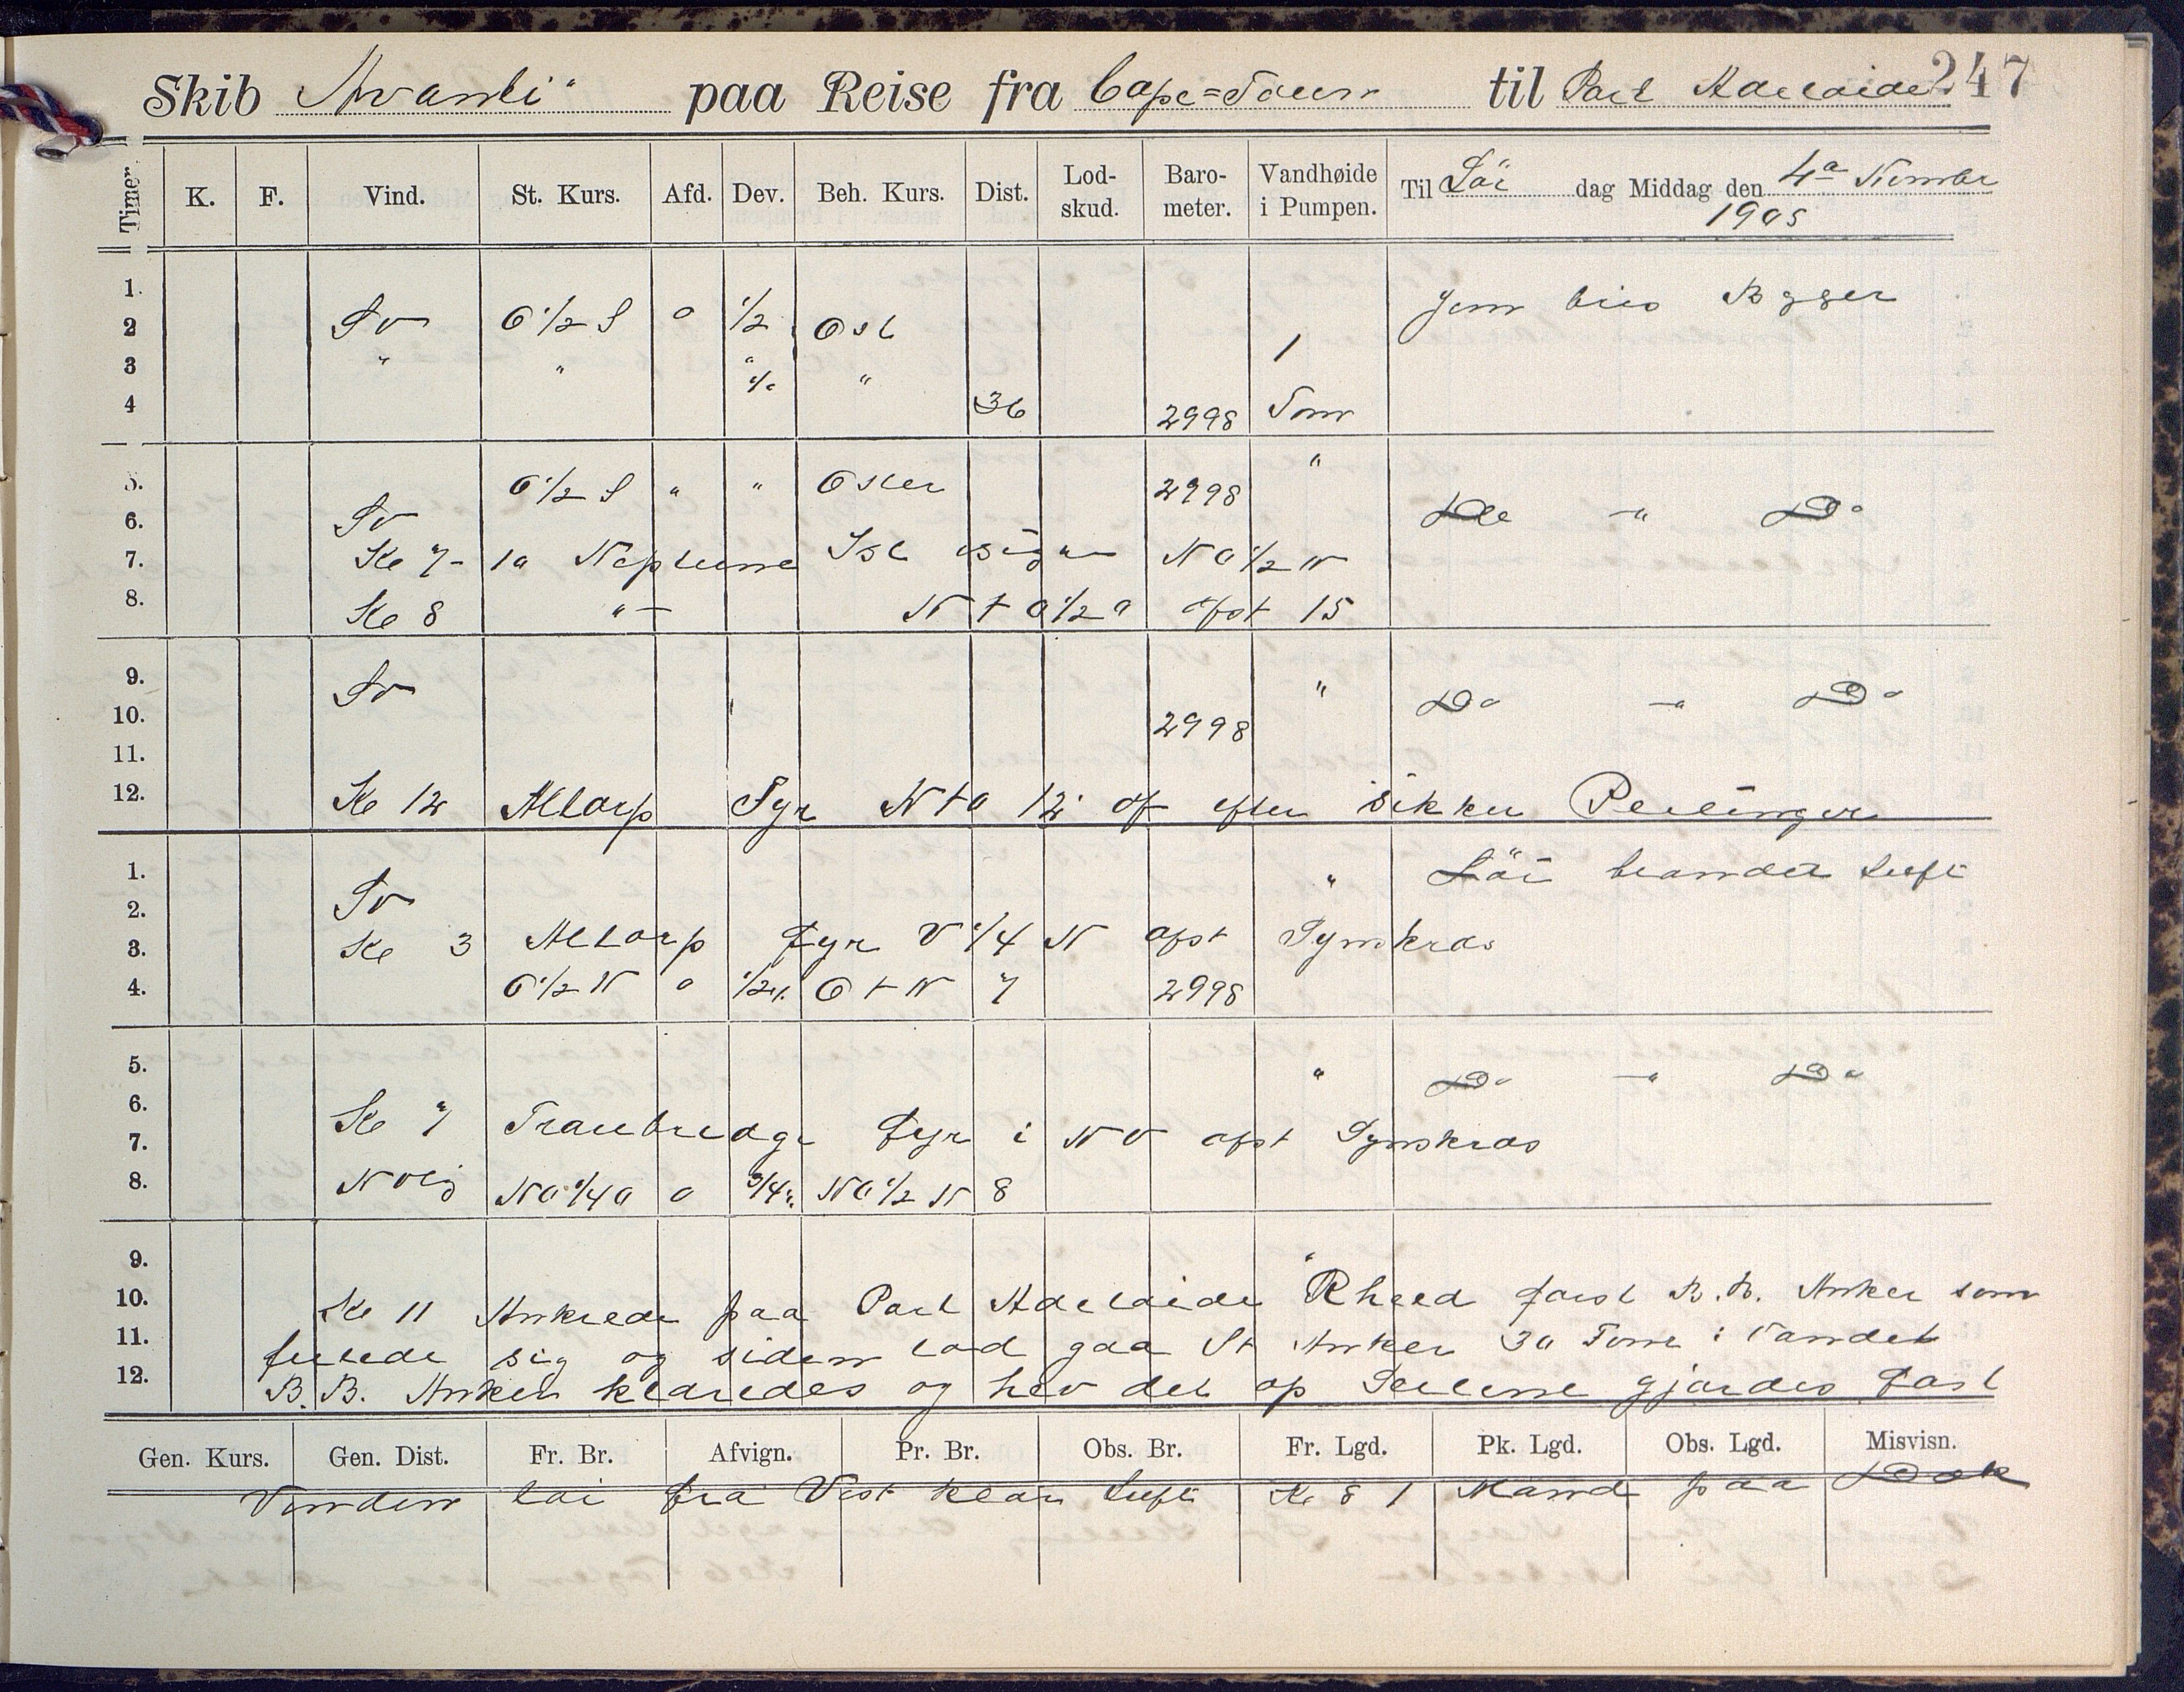 247
Skib "Avanti" paa Reise fra Cape=Town til Port Adelaide
Timer. K. F. Vind. St. Kurs. Afd. Dev. Beh. Kurs. Dist. Lod-skud. Baro-meter. Vandhøide i Pumpen. Til Lör dag Middag den 4a Novmbr 1905
1. Jevn bris Bygger
2 Sv O 1/2 S o 1/2 Ost
3 " " " " 1
4 36 2998 Tom
5. O 1/2 S " " Oster 2998 "
6. Sv Do " Do
7. Kl 7- 10 Neptune Isl NO 1/2 N
8. Kl 8 "- N t O 1/2 O afst 15
9. Sv " Do " Do
10. 2998
11.
12. Kl 12 Altorp Fyr N t O 12' af efter sikker Peilinger
1. " Löi blandet Luft
2. Sv
3. Kl 3 Altorp Fyr V 1/4 N afst Synskres
4. O 1/2 N o 1/2 O t N 7 2998
5. " Do " Do
6.
7. Kl 7 Traubredge Fyr i NV afst Synskras
8. NVlig NO 1/4 O o 3/4 NO 1/2 N 8
9. "
10. Kl 11 Ankrede paa Port Adelaide Rheed först B.B. Anker som
11. fulede sig og siden lod gaa St Anker 30 Fvne i Vandet
12. B.B. Anker klaredes og hev det op Seilene gjordes fast
Gen. Kurs. Gen. Dist. Fr. Br. Afvign. Pr. Br. Obs. Br. Fr. Lgd. Pk. Lgd. Obs. Lgd. Misvisn.
Vinden löi fra Vest klar Luft Kl 8 1 Mand paa Dæk